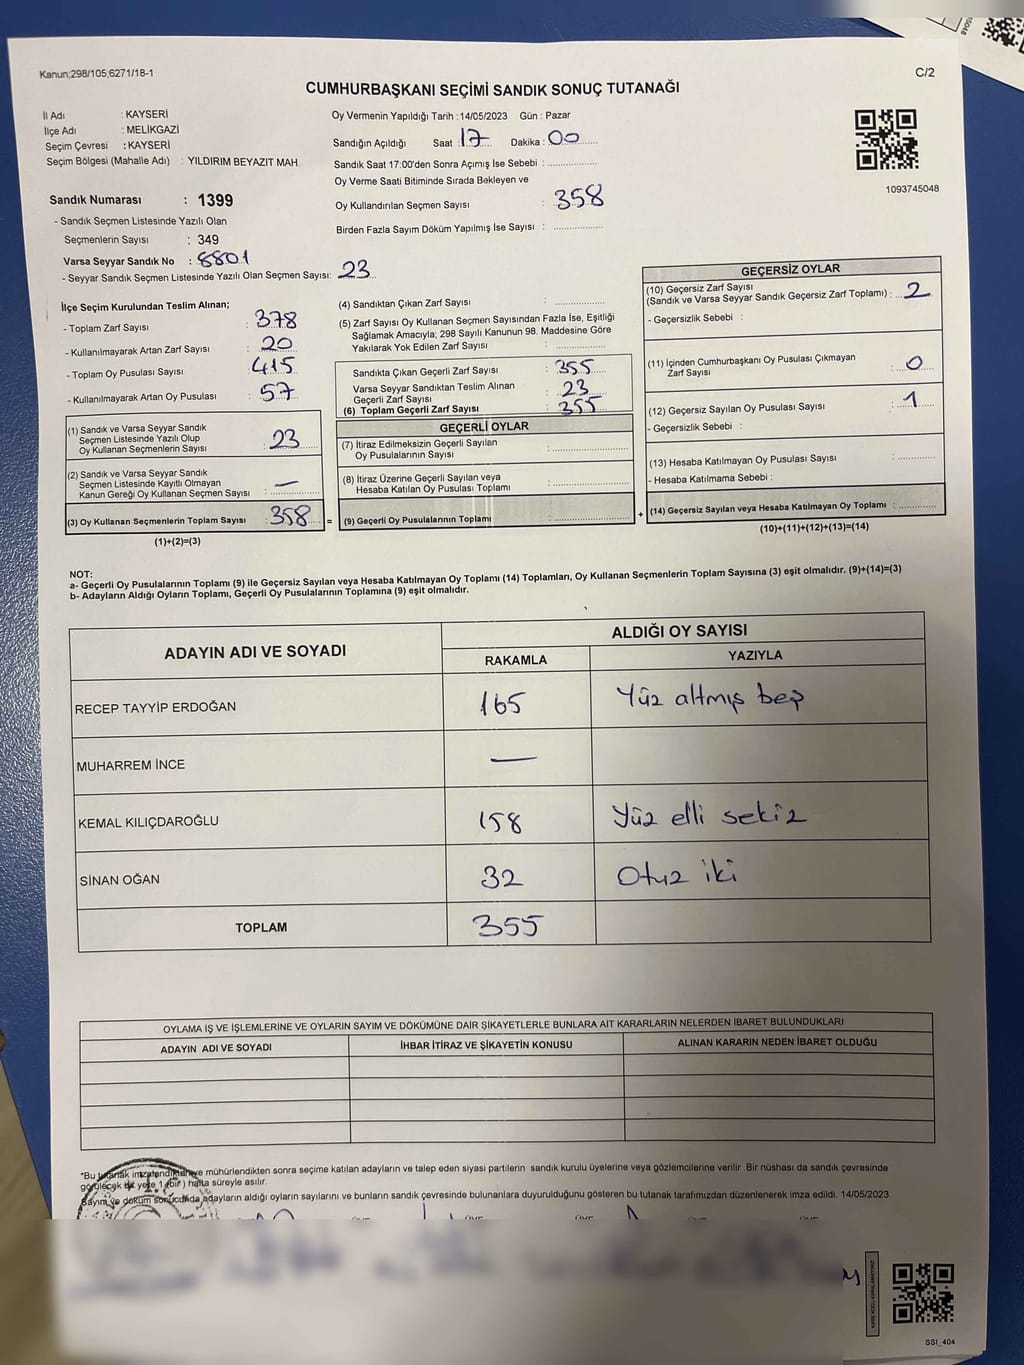 Kanun;298/105;6271/18-1
C/2
CUMHURBAŞKANI SEÇİMİ SANDIK SONUÇ TUTANAĞI
İl Adı : KAYSERİ
İlçe Adı : MELİKGAZİ
Seçim Çevresi : KAYSERİ
Seçim Bölgesi (Mahalle Adı) : YILDIRIM BEYAZIT MAH.
Sandık Numarası : 1399
- Sandık Seçmen Listesinde Yazılı Olan
Seçmenlerin Sayısı : 349
Varsa Seyyar Sandık No : 8801
- Seyyar Sandık Seçmen Listesinde Yazılı Olan Seçmen Sayısı: 23
Oy Vermenin Yapıldığı Tarih :14/05/2023 Gün : Pazar
Sandığın Açıldığı Saat : 17 Dakika : 00
Sandık Saat 17:00'den Sonra Açımış İse Sebebi :
Oy Verme Saati Bitiminde Sırada Bekleyen ve
Oy Kullandırılan Seçmen Sayısı : 358
Birden Fazla Sayım Döküm Yapılmış İse Sayısı :
1093745048
İlçe Seçim Kurulundan Teslim Alınan;
- Toplam Zarf Sayısı : 378
- Kullanılmayarak Artan Zarf Sayısı : 20
- Toplam Oy Pusulası Sayısı : 415
- Kullanılmayarak Artan Oy Pusulası : 57
(1) Sandık ve Varsa Seyyar Sandık
Seçmen Listesinde Yazılı Olup
Oy Kullanan Seçmenlerin Sayısı : 23
(2) Sandık ve Varsa Seyyar Sandık
Seçmen Listesinde Kayıtlı Olmayan
Kanun Gereği Oy Kullanan Seçmen Sayısı : —
(3) Oy Kullanan Seçmenlerin Toplam Sayısı : 358
(1)+(2)=(3)
(4) Sandıktan Çıkan Zarf Sayısı :
(5) Zarf Sayısı Oy Kullanan Seçmen Sayısından Fazla İse, Eşitliği
Sağlamak Amacıyla; 298 Sayılı Kanunun 98. Maddesine Göre
Yakılarak Yok Edilen Zarf Sayısı :
Sandıkta Çıkan Geçerli Zarf Sayısı : 355
Varsa Seyyar Sandıktan Teslim Alınan
Geçerli Zarf Sayısı : 23
(6) Toplam Geçerli Zarf Sayısı : 355
GEÇERLİ OYLAR
(7) İtiraz Edilmeksizin Geçerli Sayılan
Oy Pusulalarının Sayısı :
(8) İtiraz Üzerine Geçerli Sayılan veya
Hesaba Katılan Oy Pusulası Toplamı :
= (9) Geçerli Oy Pusulalarının Toplamı :
GEÇERSİZ OYLAR
(10) Geçersiz Zarf Sayısı
(Sandık ve Varsa Seyyar Sandık Geçersiz Zarf Toplamı) : 2
- Geçersizlik Sebebi :
(11) İçinden Cumhurbaşkanı Oy Pusulası Çıkmayan
Zarf Sayısı : 0
(12) Geçersiz Sayılan Oy Pusulası Sayısı : 1
- Geçersizlik Sebebi :
(13) Hesaba Katılmayan Oy Pusulası Sayısı :
- Hesaba Katılmama Sebebi :
+ (14) Geçersiz Sayılan veya Hesaba Katılmayan Oy Toplamı :
(10)+(11)+(12)+(13)=(14)
NOT:
a- Geçerli Oy Pusulalarının Toplamı (9) ile Geçersiz Sayılan veya Hesaba Katılmayan Oy Toplamı (14) Toplamları, Oy Kullanan Seçmenlerin Toplam Sayısına (3) eşit olmalıdır. (9)+(14)=(3)
b- Adayların Aldığı Oyların Toplamı, Geçerli Oy Pusulalarının Toplamına (9) eşit olmalıdır.
ADAYIN ADI VE SOYADI
ALDIĞI OY SAYISI
RAKAMLA YAZIYLA
RECEP TAYYİP ERDOĞAN 165 Yüz altmış beş
MUHARREM İNCE —
KEMAL KILIÇDAROĞLU 158 Yüz elli sekiz
SİNAN OĞAN 32 Otuz iki
TOPLAM 355
OYLAMA İŞ VE İŞLEMLERİNE VE OYLARIN SAYIM VE DÖKÜMÜNE DAİR ŞİKAYETLERLE BUNLARA AİT KARARLARIN NELERDEN İBARET BULUNDUKLARI
ADAYIN ADI VE SOYADI İHBAR İTİRAZ VE ŞİKAYETİN KONUSU ALINAN KARARIN NEDEN İBARET OLDUĞU
*Bu tutanak imzalandıktan ve mühürlendikten sonra seçime katılan adayların ve talep eden siyasi partilerin sandık kurulu üyelerine veya gözlemcilerine verilir. Bir nüshası da sandık çevresinde
görülecek bir yere 1 (bir) hafta süreyle asılır.
Sayım ve döküm sonucunda adayların aldığı oyların sayılarını ve bunların sandık çevresinde bulunanlara duyurulduğunu gösteren bu tutanak tarafımızdan düzenlenerek imza edildi. 14/05/2023
SSI_404